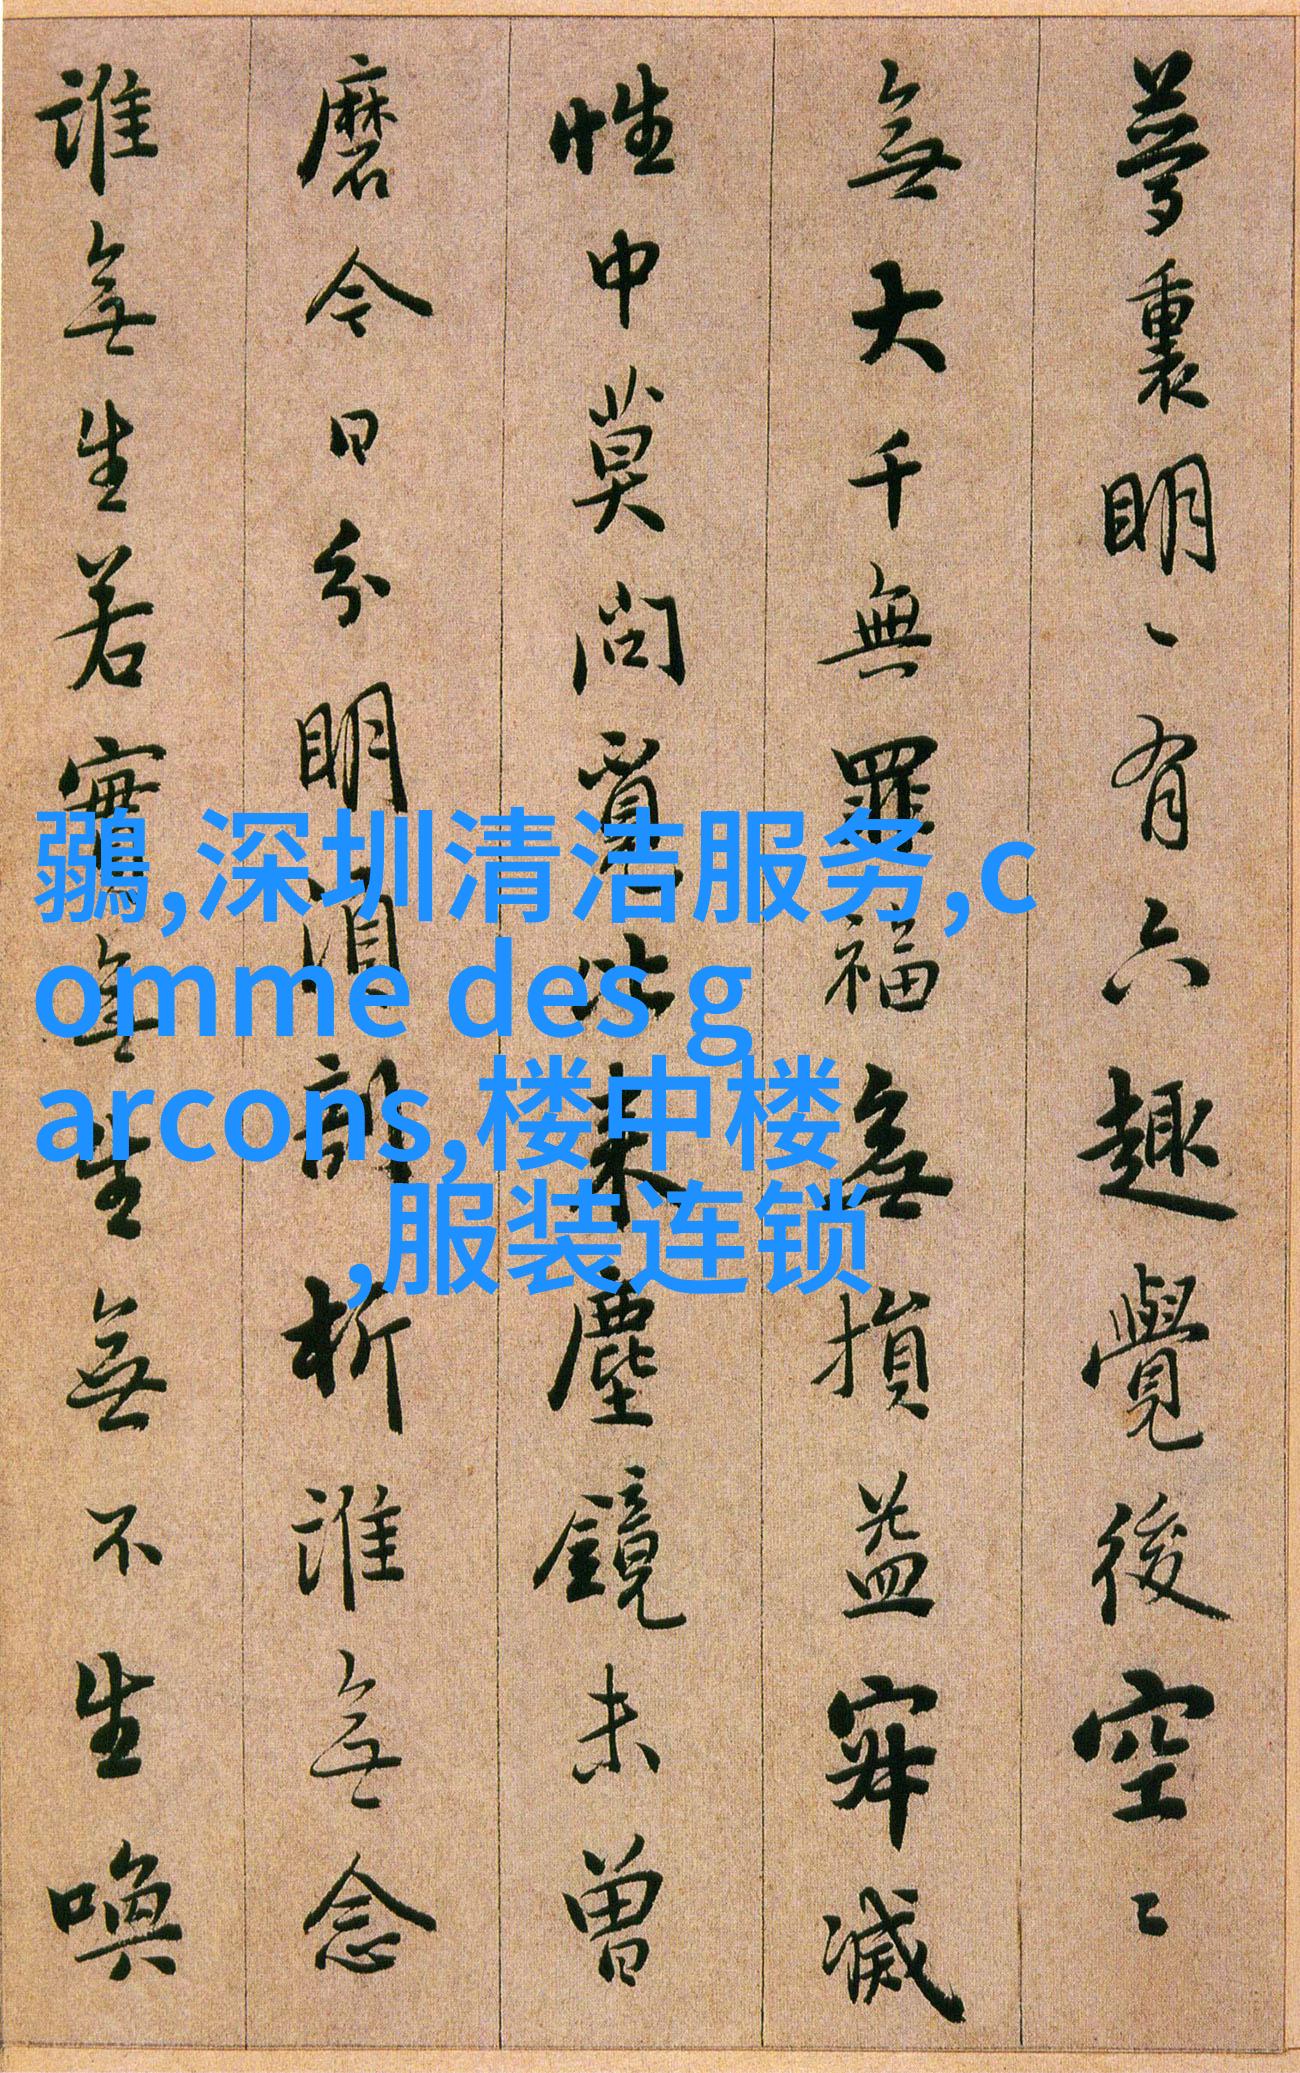 夢裏明々有六趣覺後空々
無大千無罪福無損益寂滅
性中莫問覓比來塵鏡未曾
磨今日分明須剖析誰無念
誰無生若實無生無不生喚
鶸,深圳清洁服务,c
omme des g
arcons,楼中楼
,服装连锁